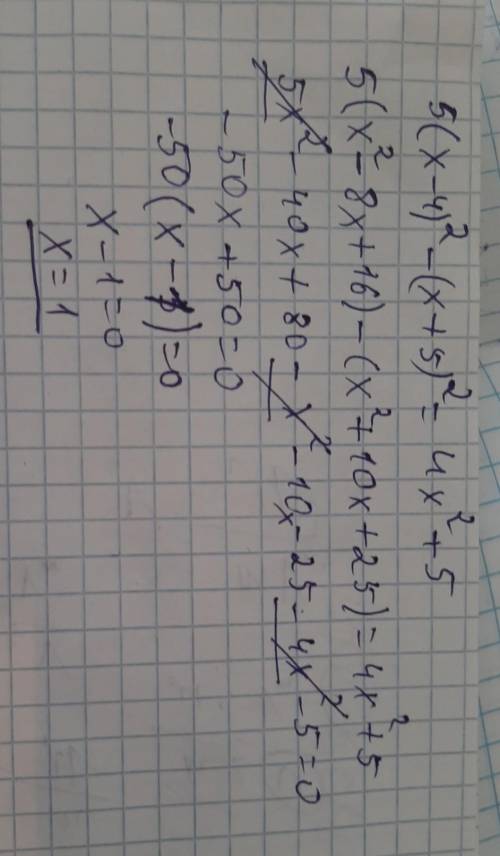 5(x-4)² - (x+5)² = 4x² + 5
5(x² - 8x + 16) - (x² + 10x + 25) = 4x² + 5
5x² - 40x + 80 - x² - 10x - 25 - 4x² - 5 = 0
- 50x + 50 = 0
-50(x - 1) = 0
x - 1 = 0
x = 1